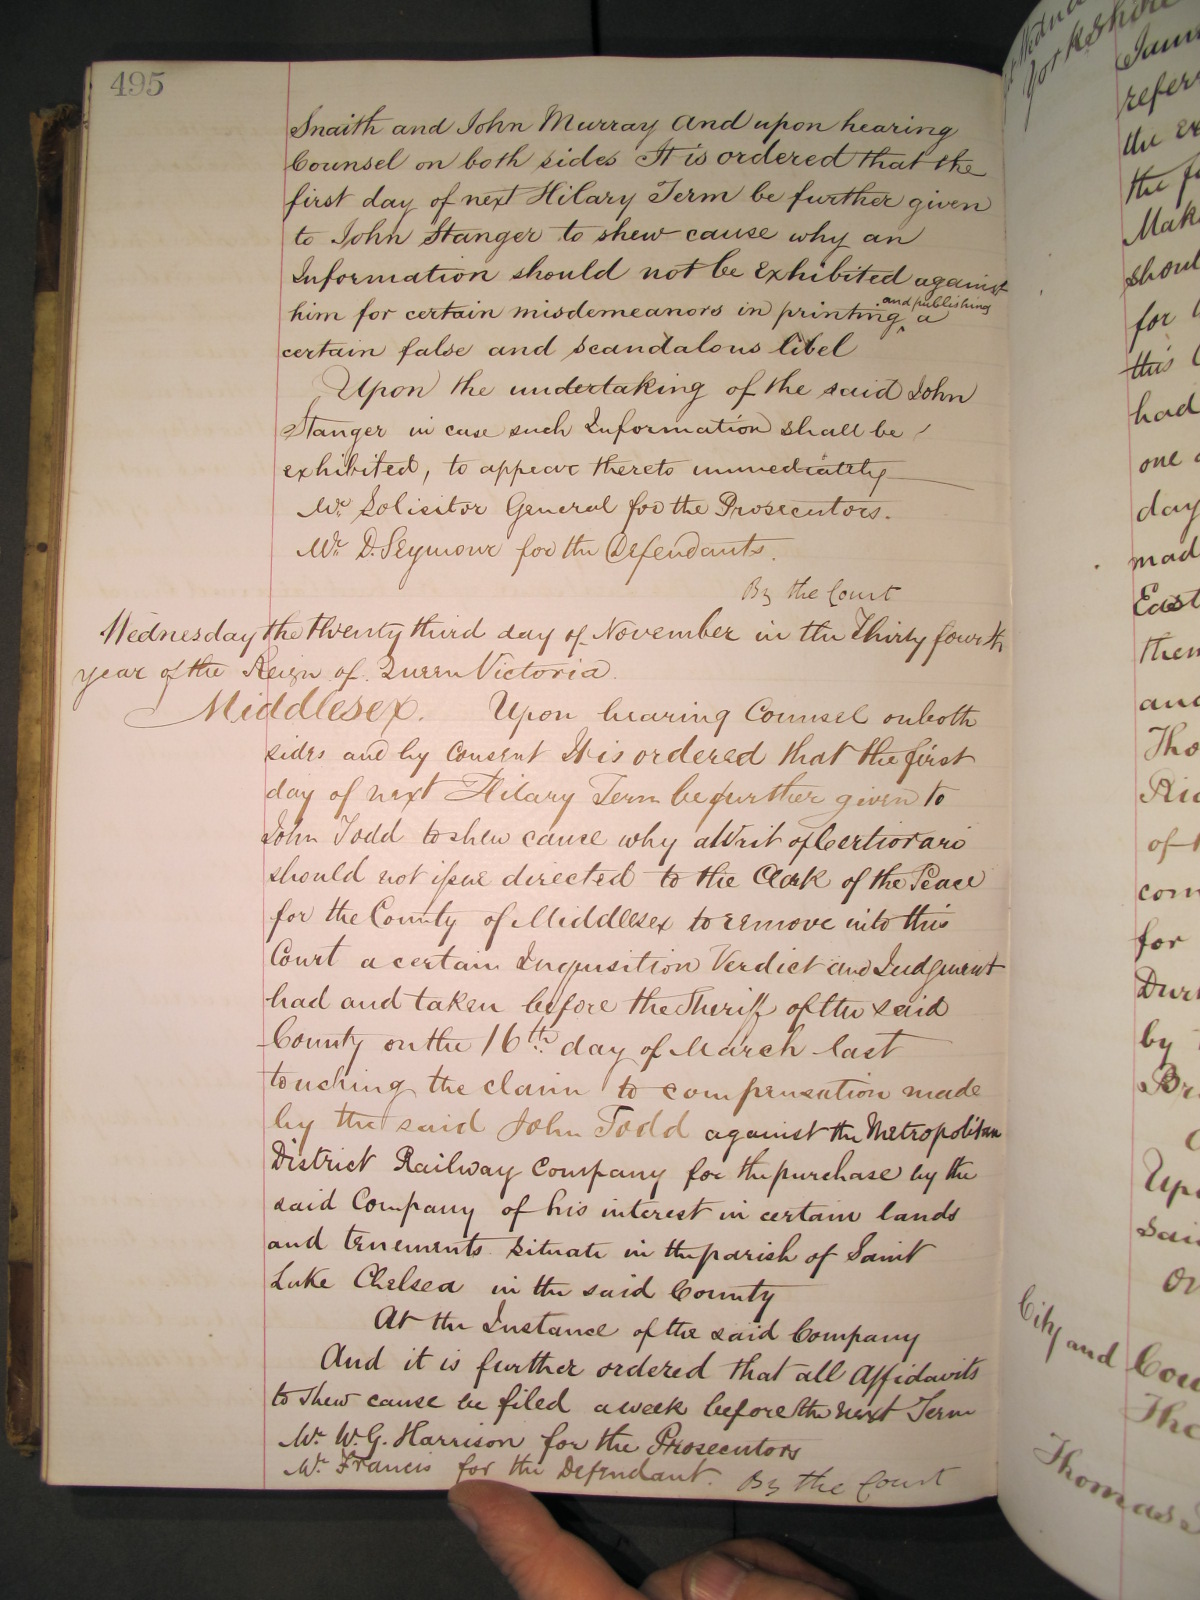 495
Snaith and John Murray And upon hearing
Counsel on both sides It is ordered that the
first day of next Hilary Term be further given
to John Stanger to shew cause why an
Information should not be exhibited against
him for certain misdemeanors in printing and publishing a
certain false and scandalous libel
Upon the undertaking of the said John
Stanger in case such Information shall be
exhibited, to appear thereto immediately
Mr. Solicitor General for the Prosecutors.
Mr. D. Seymour for the Defendants.
By the Court
Wednesday the twenty third day of November in the Thirty fourth
year of the Reign of Queen Victoria.
Middlesex. Upon hearing Counsel on both
sides and by consent It is ordered that the first
day of next Hilary Term be further given to
John Todd to shew cause why a Writ of Certiorari
should not issue directed to the Clerk of the Peace
for the County of Middlesex to remove into this
Court a certain Inquisition Verdict and Judgment
had and taken before the Sheriff of the said
County on the 16th day of March last
touching the claim to compensation made
by the said John Todd against the Metropolitan
District Railway Company for the purchase by the
said Company of his interest in certain lands
and tenements situate in the parish of Saint
Luke Chelsea in the said County
At the Instance of the said Company
And it is further ordered that all Affidavits
to shew cause be filed a week before the next Term
Mr. W. G. Harrison for the Prosecutors
Mr. Francis for the Defendant. By the Court
Yorkshire
the
the
should
for
this
had
one
day
East
them
and
of
for
by
City and
Thomas